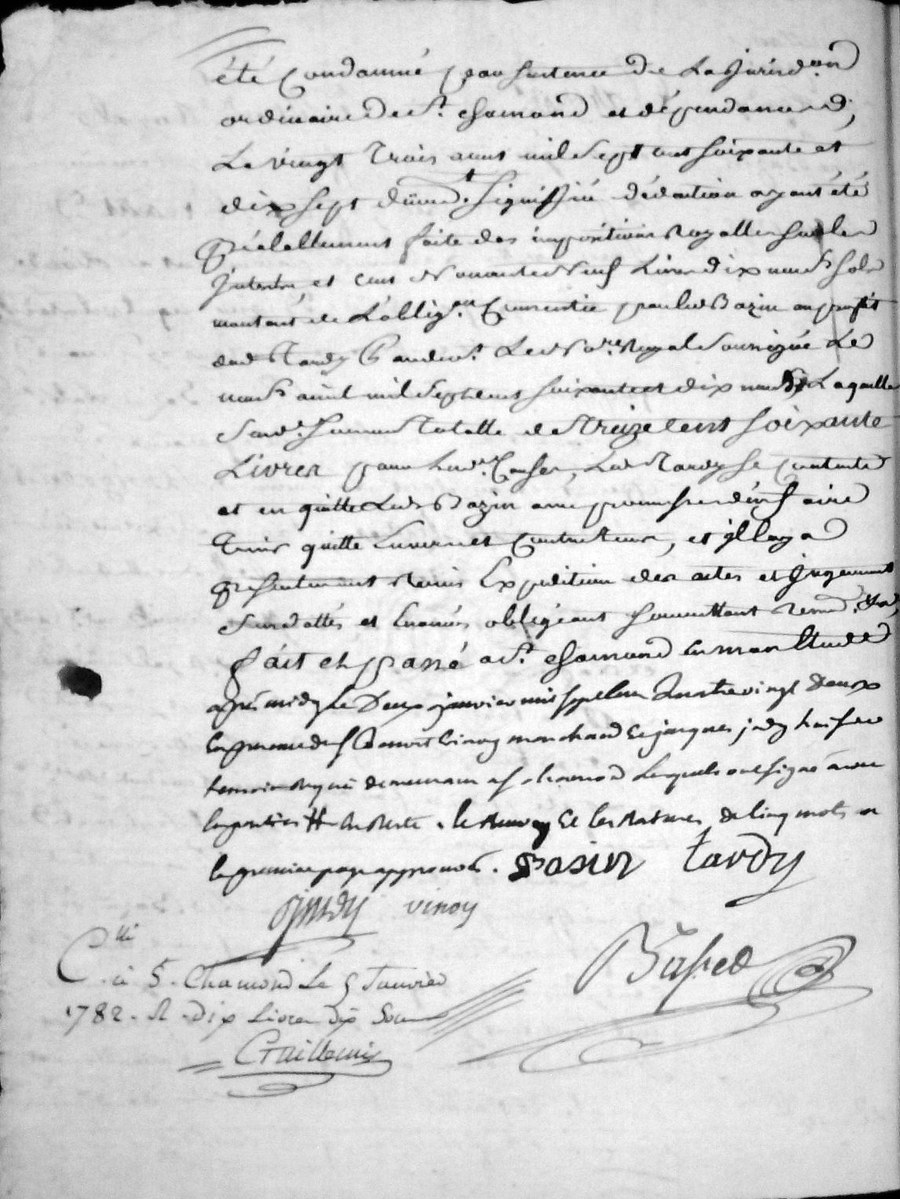 été Condamné par sentence de La jurisd.on
ordinaire de St. chamond et dépendances,
Le vingt Trois aout mil Sept cent soixante et
dix sept düem.t Signiffiée déduction ayant été
préalablement faite des impositions Royalles sur les
Interets et cent Nonante Neuf Livres dix neuf sols
montant de L'oblig.on Consentie par led Bazin au profit
dud Tardy Pardev.t Led No.re Royal Soussigné Le
neuf avril mil Sept cent soixante et dix neuf, Laquelle
Susd. Somme Totalle de Treize cent soixante
Livres pour Lesd. Causes, Led Tardy se contente
et en quitte Led Bazin avec promesse de l'en faire
Tenir quitte Envers et Contre tous, et il luy a
presentement Remis Expedition des actes et Jugement
Susdattés et Enoncés obligeant soumettant Renon.
fait et passé a St. chamond En mon Etude
après midy Le Deux janvier mil sept cent quatre vingt deux
En presence de Sr Benoit vinoy marchand & jacques judy huissier
temoins Requis demeurant a St. chamond Lesquels ont signé avec
Les parties la minutte. Le Renvoy & Les Ratures de Cinq mots en
La premiere page approuvés. Basin tardy
Judy vinoy
C.llé
à S. Chamond Le 5 Janvier
1782. R. Dix Livres dix Sous